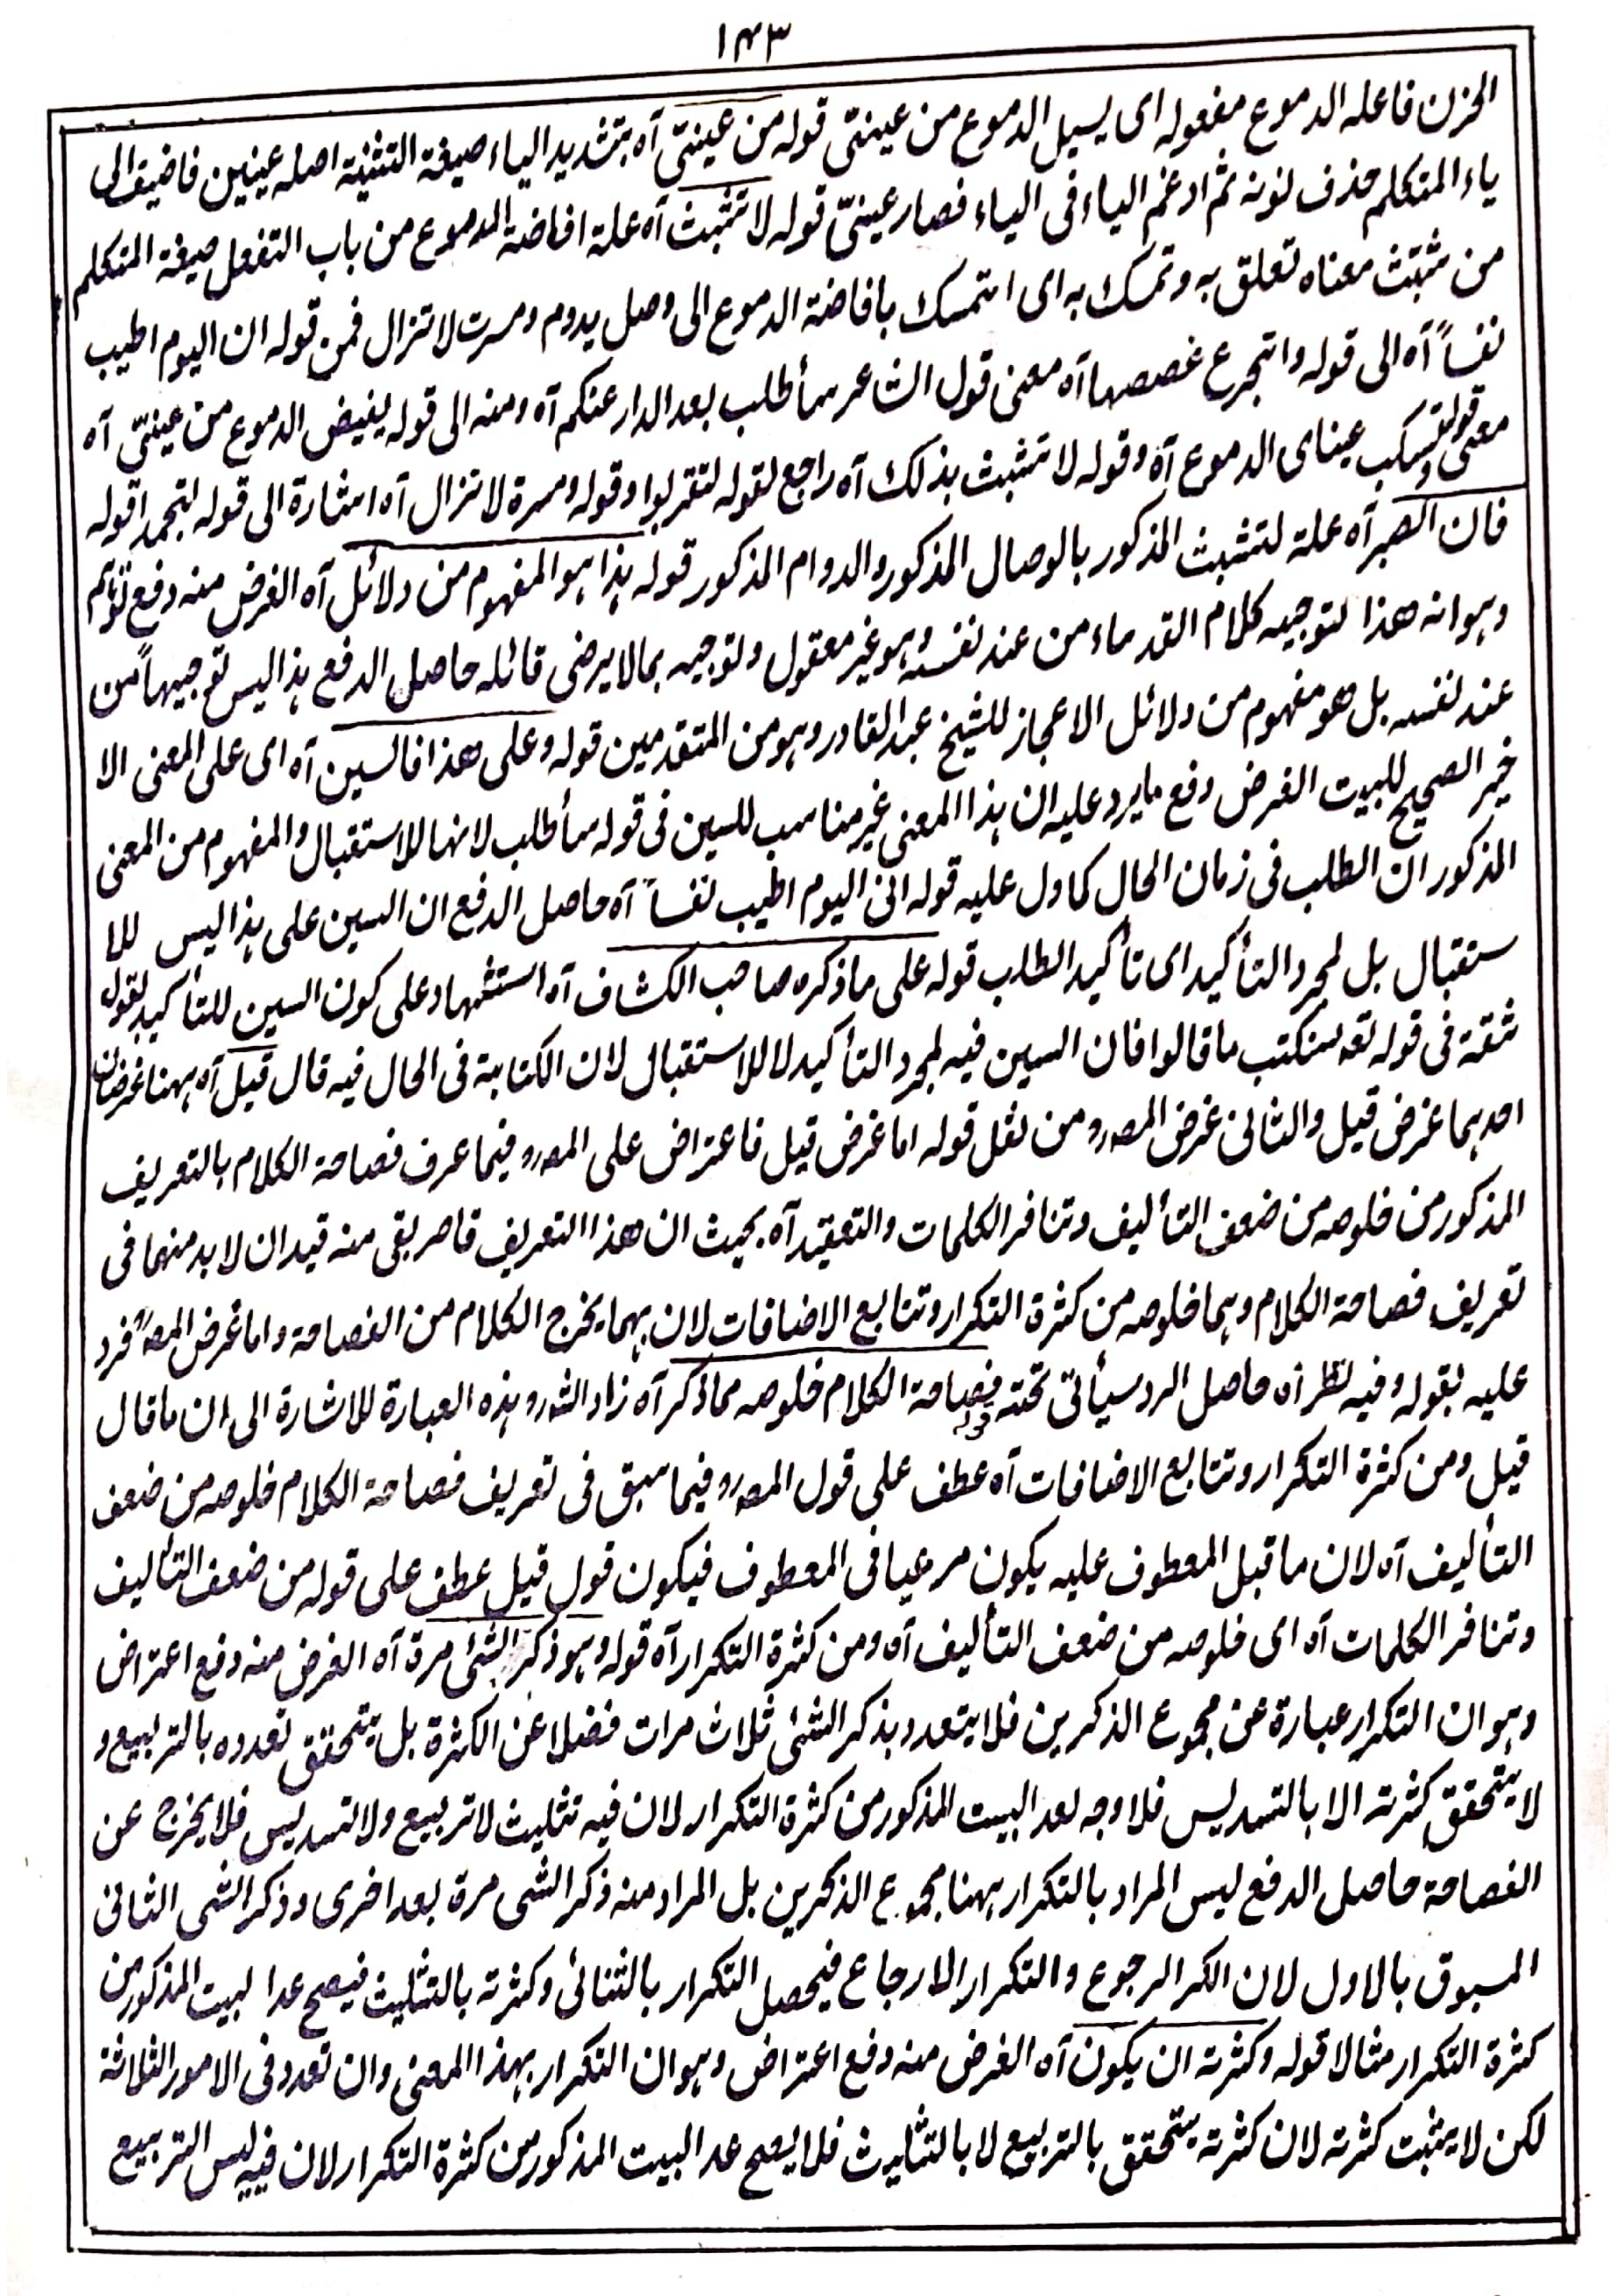 ١٤٣
الحزن فاعله الدموع مفعوله اى يسيل الدموع من عينىّ قوله من عينىّ آه بتشديد الياء صيغة التثنية اصله عينين فاضيف الى
ياء المتكلم حذف نونه ثم ادغم الياء فى الياء فصار عينىّ قوله لا تشبث آه علة افاضة الدموع من باب التفعل صيغة المتكلم
من شبث معناه تعلق به وتمسك به اى اتمسك بافاضة الدموع الى وصل يدوم ومسرت لا تزال فمن قوله ان اليوم اطيب
نفساً آه الى قوله واتجرع غصصها آه معنى قول الشاعر سأطلب بعد الدار عنكم آه ومنه الى قوله يفيض الدموع من عينىّ آه
معنى قوله وتسكب عيناى الدموع آه وقوله لا تشبث بذلك آه راجع لقوله لتقربوا وقوله ومسرة لا تزال آه اشارة الى قوله لتجمدا قوله
فان الصبر آه علة لتشبث المذكور بالوصال المذكور والدوام المذكور قوله هذا هو المفهوم من دلائل آه الغرض منه دفع توهم
وهو انه هذا لتوجيه كلام القدماء من عند نفسه وهو غير معقول ولتوجيه بما لا يرضى قائله حاصل الدفع هذا ليس توجيهاً من
عند نفسه بل هو مفهوم من دلائل الاعجاز للشيخ عبد القادر وهو من المتقدمين قوله وعلى هذا فالسين آه اى على المعنى الا
خير الصحيح للبيت الغرض دفع ما يرد عليه ان هذا المعنى غير مناسب للسين فى قوله سأطلب لانها للاستقبال والمفهوم من المعنى
المذكور ان الطلب فى زمان الحال كما دل عليه قوله انى اليوم اطيب نفساً آه حاصل الدفع ان السين على هذا ليس للا
ستقبال بل لمجرد التأكيد اى تأكيد الطلب قوله على ما ذكره صاحب الكشاف آه استشهاد على كون السين للتأكيد بقول
ثقة فى قوله تعه سنكتب ما قالوا فان السين فيه لمجرد التأكيد لا للاستقبال لان الكتابة فى الحال فيه قال قيل آه ههنا غرضان
احدهما غرض قيل والثانى غرض المصرو من نقل قوله اما غرض قيل فاعتراض على المصرو فيما عرف فصاحة الكلام بالتعريف
المذكور من خلوصه من ضعف التأليف وتنافر الكلمات والتعقيد آه بحيث ان هذا التعريف قاصر بقى منه قيدان لا بد منهما فى
تعريف فصاحة الكلام وهما خلوصه من كثرة التكرار وتتابع الاضافات لان بهما يخرج الكلام من الفصاحة واما غرض المصر فرد
عليه بقوله وفيه نظر آه حاصل الرد سيأتى تحته قوله فصاحة الكلام خلوصه مما ذكر آه زاد الشرو هذه العبارة للاشارة الى ان ما قال
قيل ومن كثرة التكرار وتتابع الاضافات آه عطف على قول المصرو فيما سبق فى تعريف فصاحة الكلام خلوصه من ضعف
التأليف آه لان ما قبل المعطوف عليه يكون مرعيا فى المعطوف فيكون قول قيل عطف على قوله من ضعف التأليف
وتنافر الكلمات آه اى خلوصه من ضعف التأليف آه ومن كثرة التكرار آه قوله وهو ذكر الشئ مرة آه الغرض منه دفع اعتراض
وهو ان التكرار عبارة عن مجموع الذكرين فلا يتعدد بذكر الشئ ثلاث مرات فضلا عن الكثرة بل يتحقق تعدده بالتربيع و
لا يتحقق كثرته الا بالتسديس فلا وجه لعد البيت المذكور من كثرة التكرار لان فيه تثليث لا تربيع ولا تسديس فلا يخرج عن
الفصاحة حاصل الدفع ليس المراد بالتكرار ههنا مجموع الذكرين بل المراد منه ذكر الشى مرة بعد اخرى وذكر الشى الثانى
المسبوق بالاول لان الكر الرجوع والتكرار الارجاع فيحصل التكرار بالثنائى وكثرته بالتثليث فيصح عد البيت المذكور من
كثرة التكرار مثالا قوله وكثرته ان يكون آه الغرض منه دفع اعتراض وهو ان التكرار بهذا المعنى وان تعدد فى الامور الثلاثة
لكن لا يثبت كثرته لان كثرته يتحقق بالتربيع لا بالتثليث فلا يصح عد البيت المذكور من كثرة التكرار لان فيه ليس التربيع